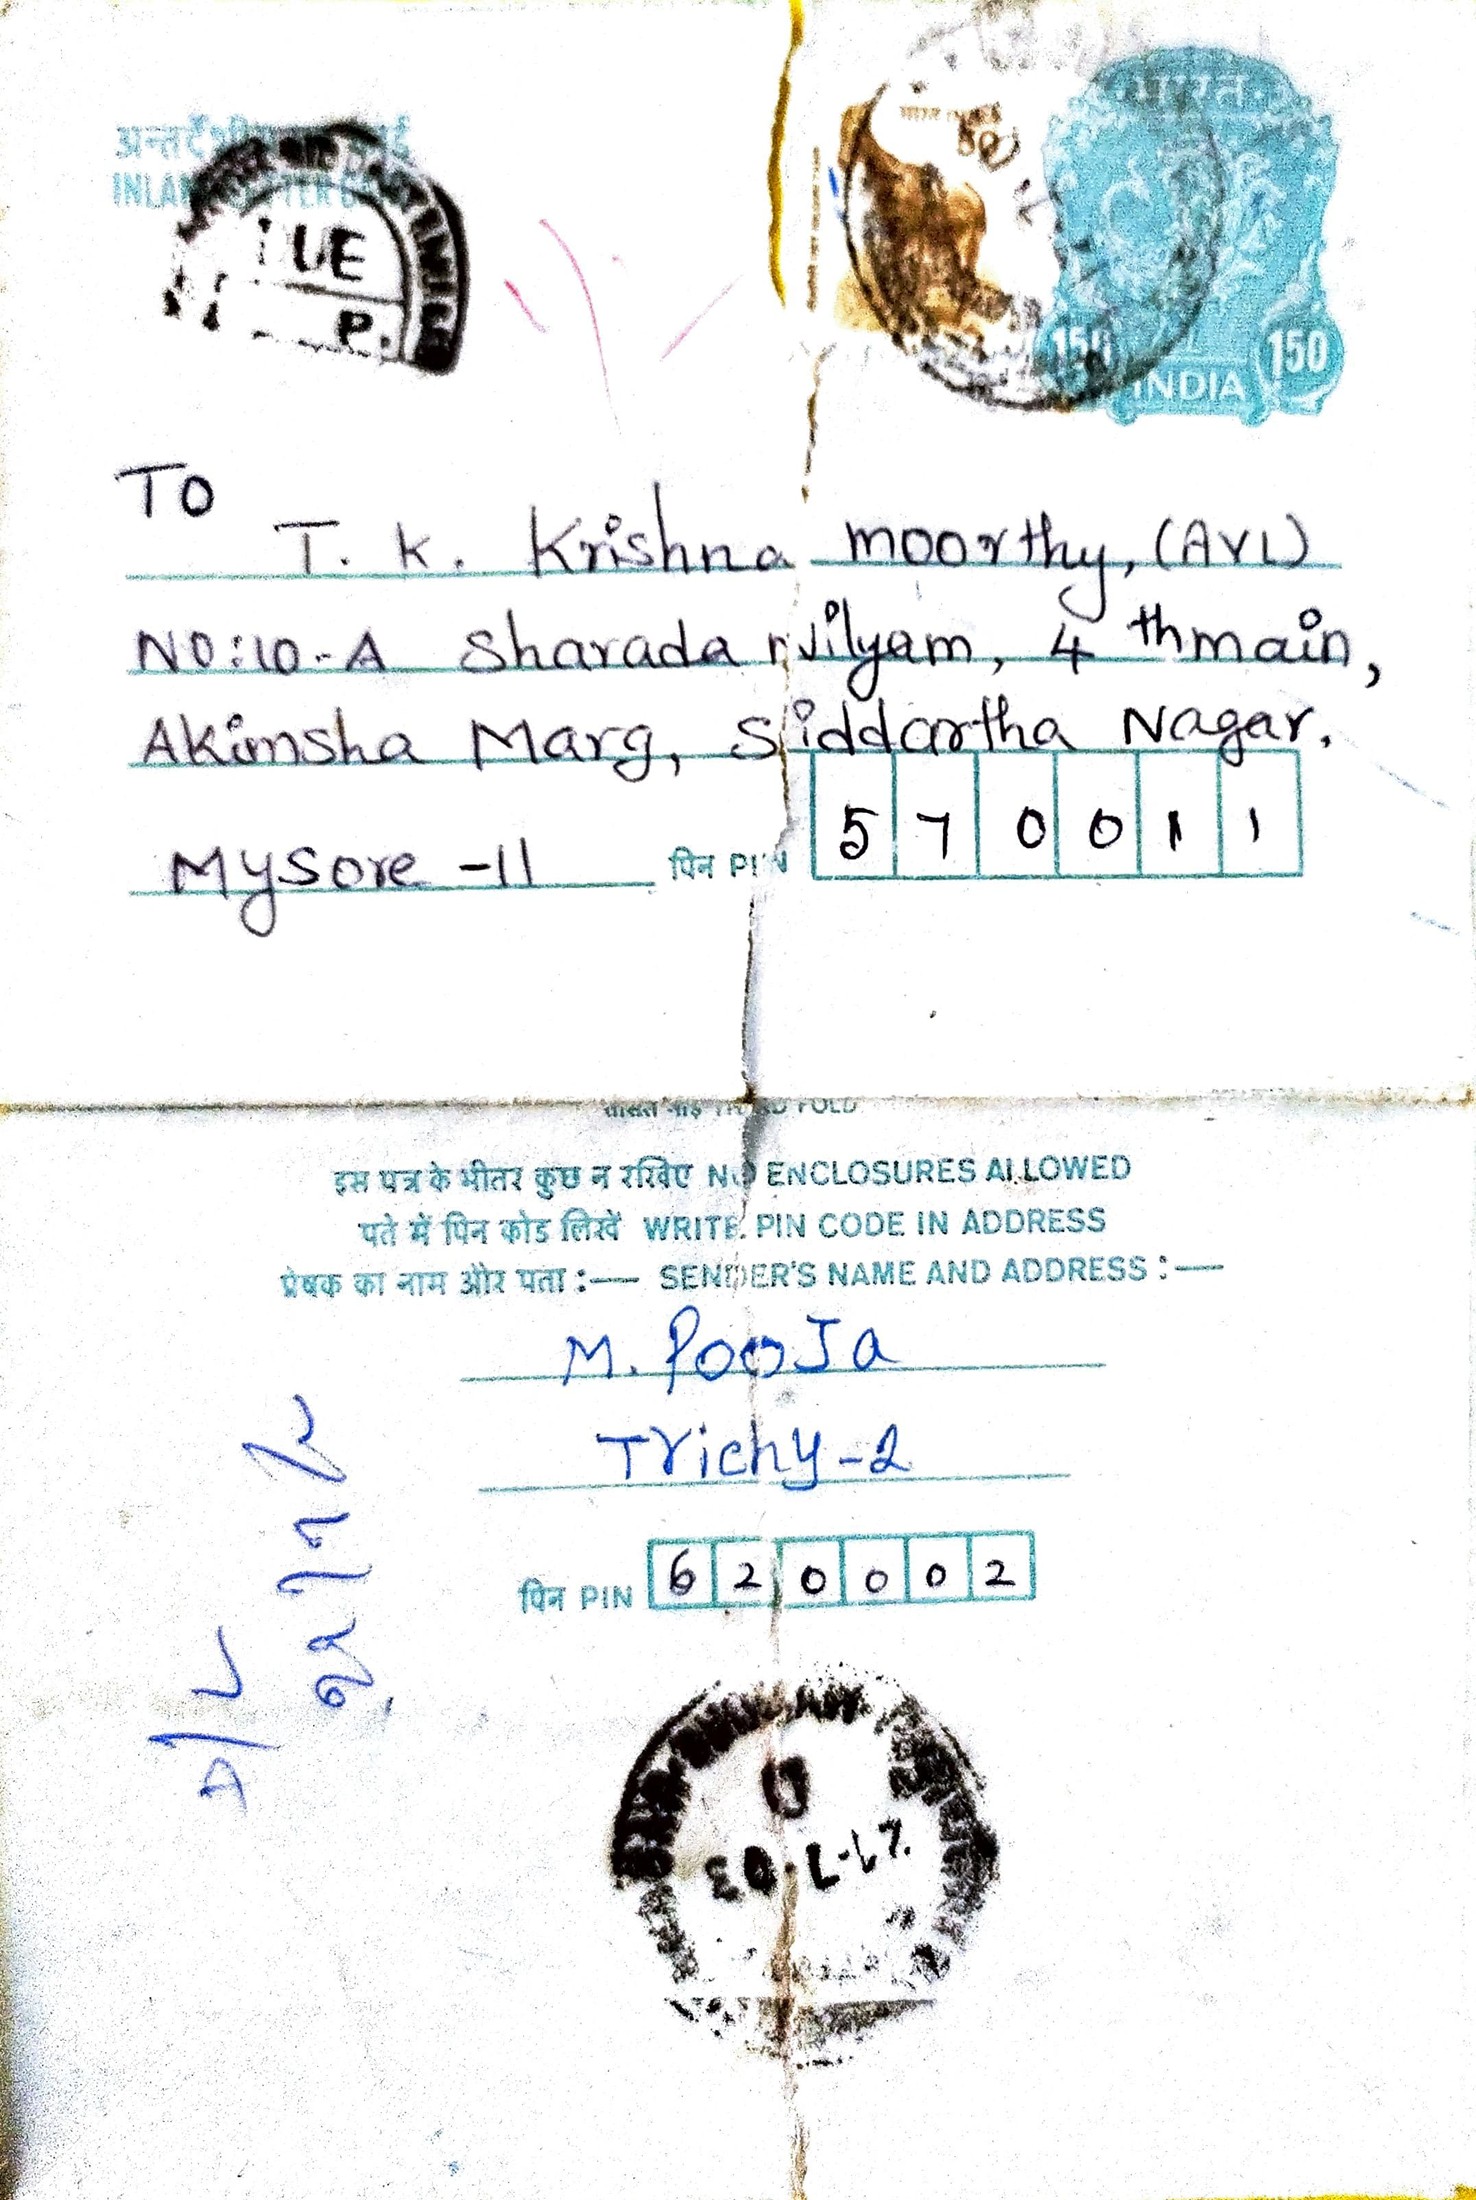 भारत
INDIA
150
UE
P.
TO
T. K. Krishna moorthy, (AVL)
NO:10-A Sharada nilyam, 4 th main,
Akimsha Marg, Siddartha Nagar.
Mysore -11 पिन PIN 5 7 0 0 1 1
THIRD FOLD
इस पत्र के भीतर कुछ न रखिए NO ENCLOSURES ALLOWED
पते में पिन कोड लिखें WRITE PIN CODE IN ADDRESS
प्रेषक का नाम और पता :— SENDER'S NAME AND ADDRESS :—
M. PooJa
Trichy-2
पिन PIN 6 2 0 0 0 2